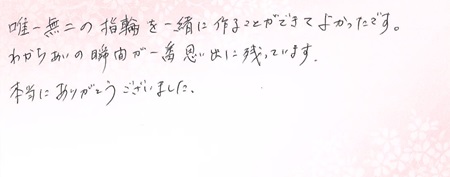 唯一無二の指輪を一緒に作ることができてよかったです。
わからあいの瞬間が一番思い出に残っています.
本当にありがとうございました.